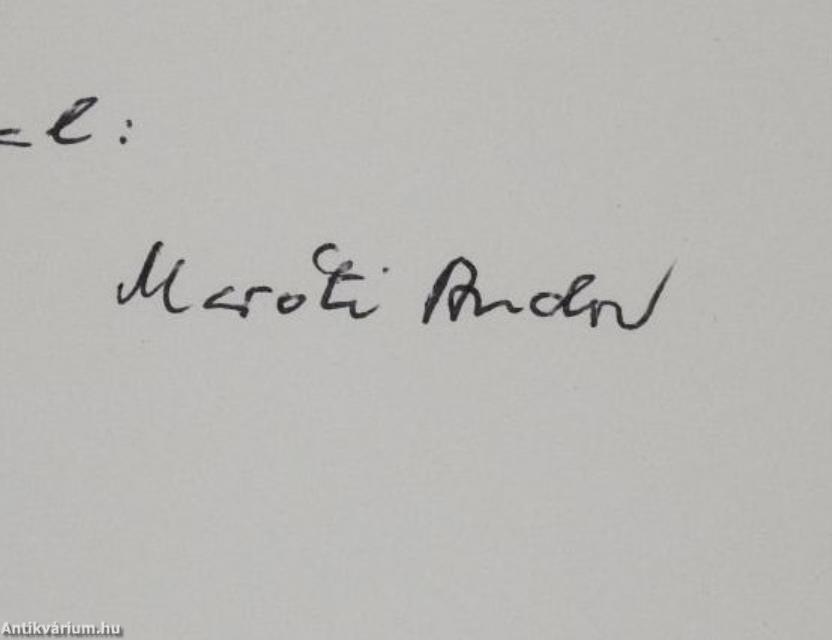 el:
Maróti Andor
Antikvárium.hu